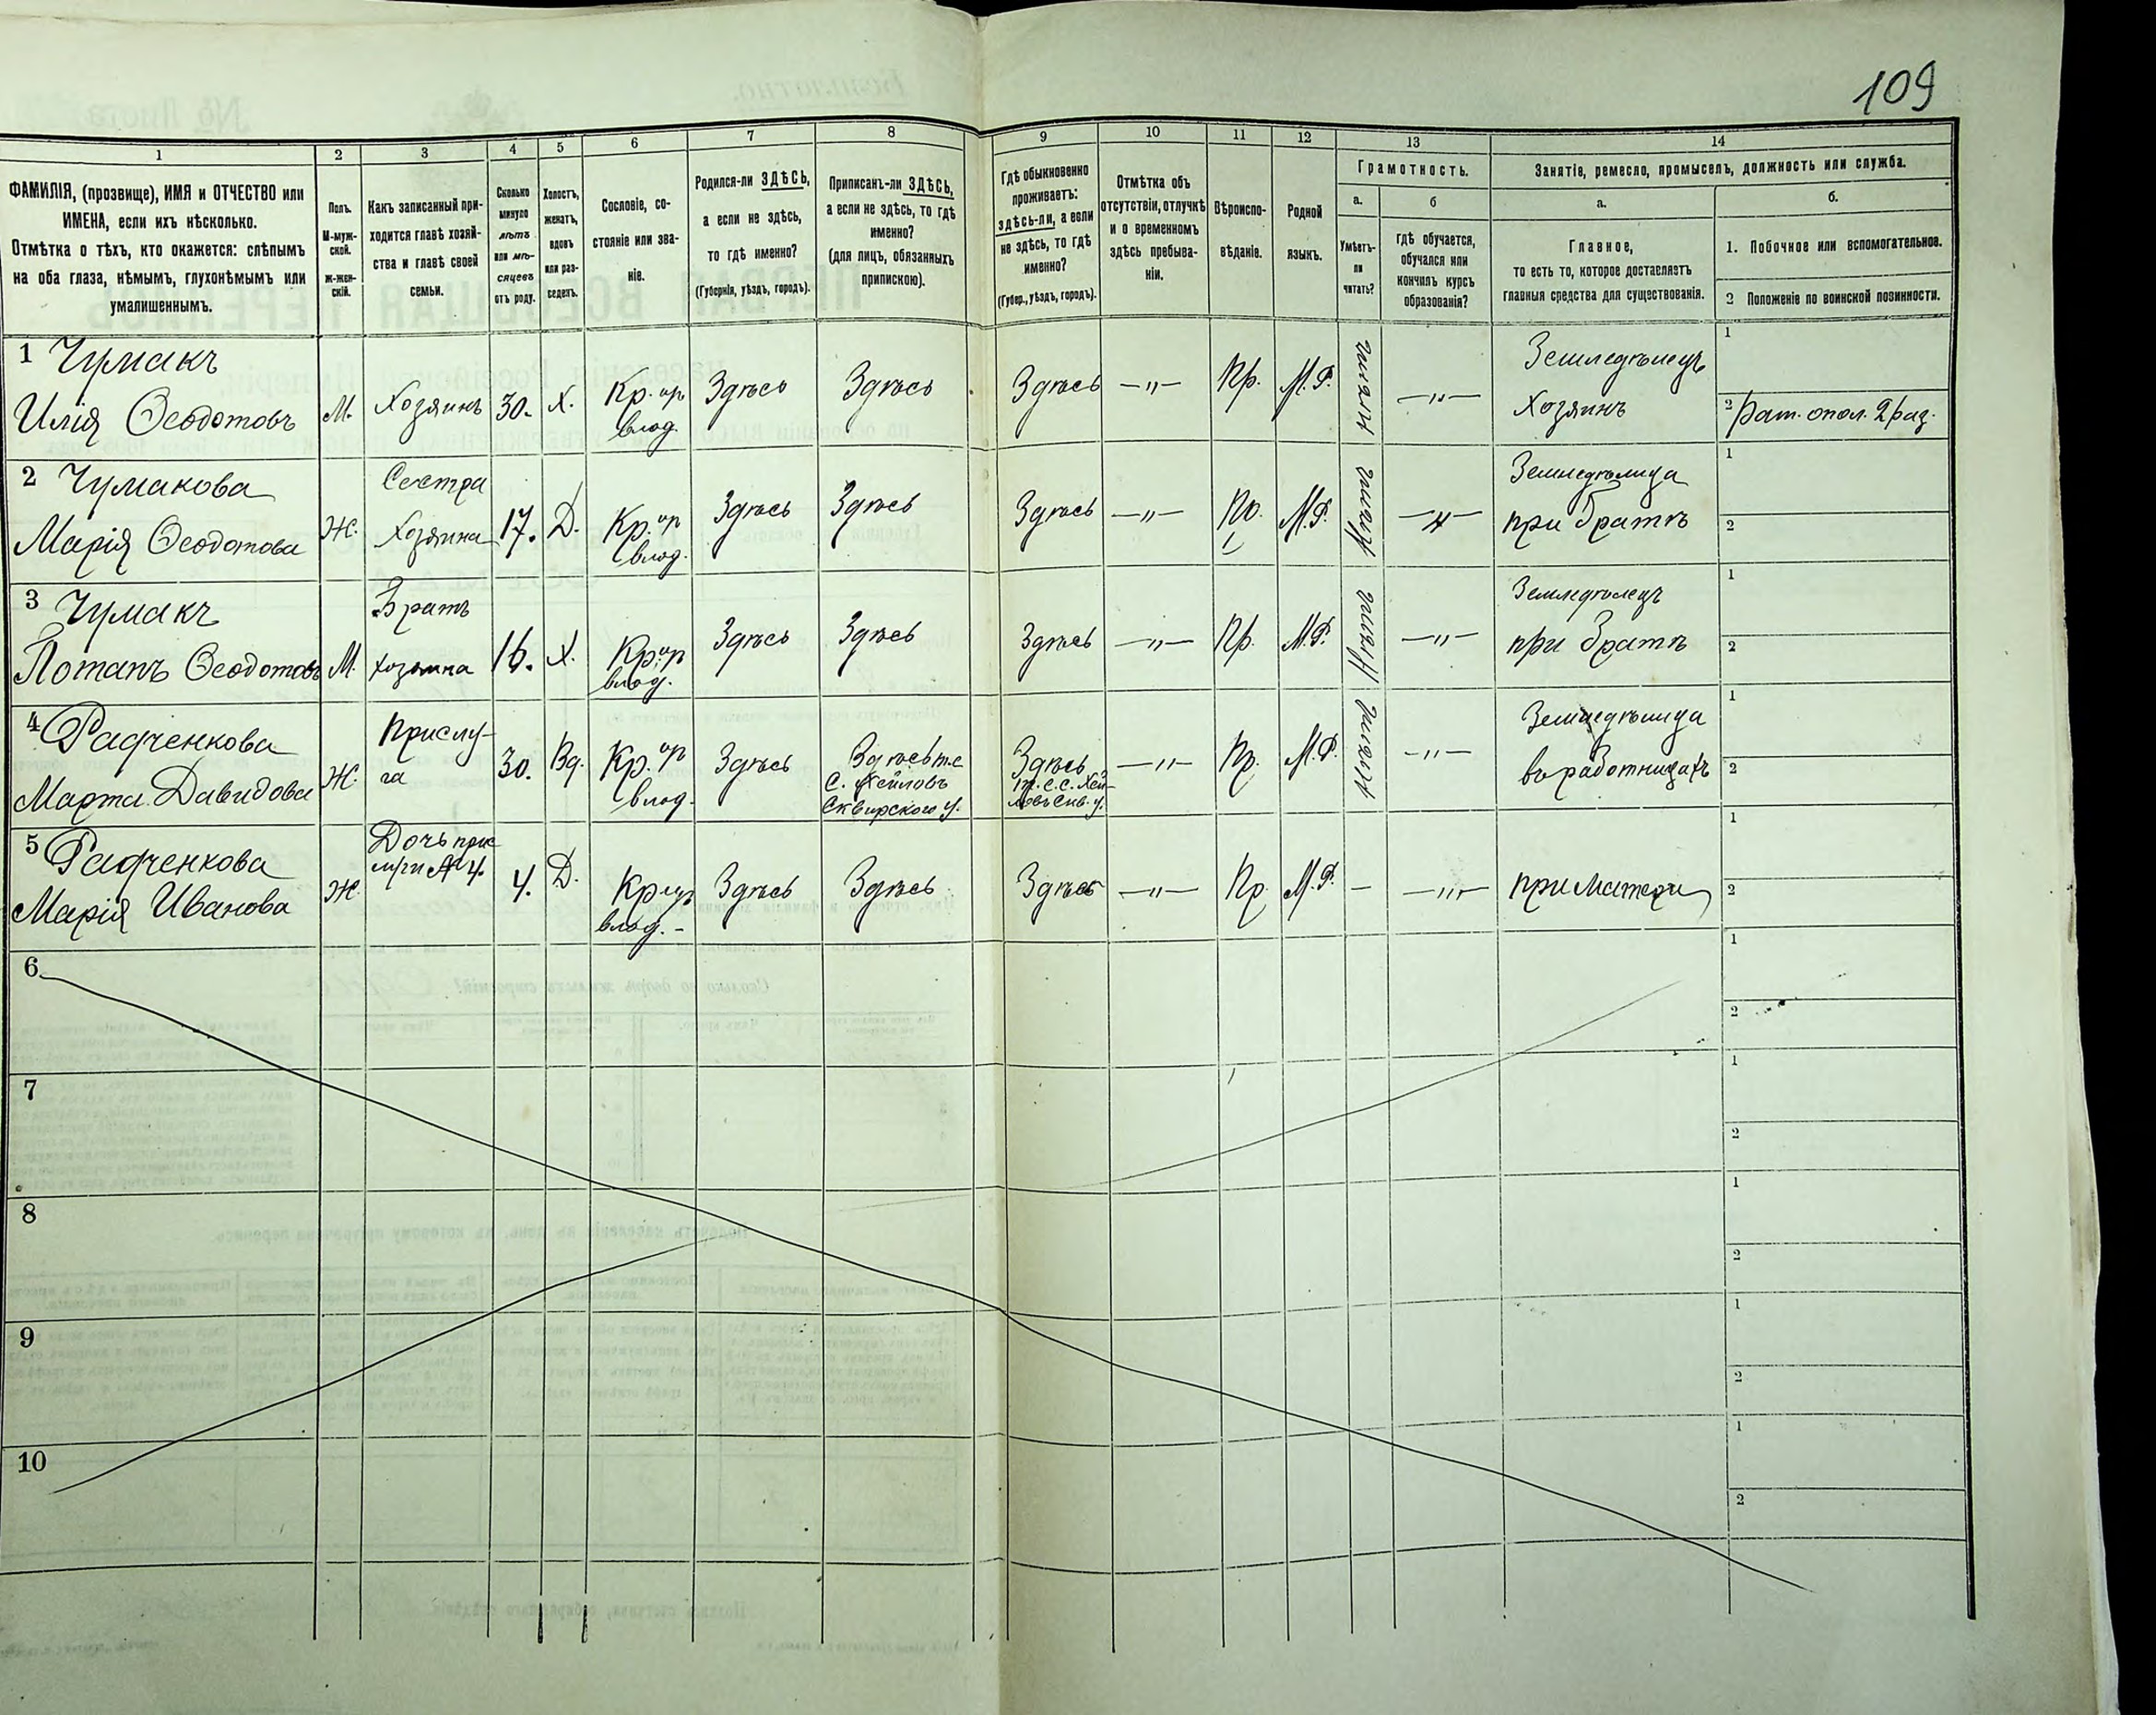 109
1 2 3 4 5 6 7 8 9 10 11 12 13 14
ФАМИЛІЯ, (прозвище), ИМЯ и ОТЧЕСТВО или
ИМЕНА, если ихъ нѣсколько.
Отмѣтка о тѣхъ, кто окажется: слѣпымъ
на оба глаза, нѣмымъ, глухонѣмымъ или
умалишеннымъ.
Полъ.
М-муж-
ской.
Ж-жен-
скій.
Какъ записанный при-
ходится главѣ хозяй-
ства и главѣ своей
семьи.
Сколько
минуло
лѣтъ
или мѣ-
сяцевъ
отъ роду.
Холостъ,
женатъ,
вдовъ
или раз-
веденъ.
Сословіе, со-
стояніе или зва-
ніе.
Родился-ли ЗДѢСЬ,
а если не здѣсь,
то гдѣ именно?
(Губернія, уѣздъ, городъ).
Приписанъ-ли ЗДѢСЬ,
а если не здѣсь, то гдѣ
именно?
(для лицъ, обязанныхъ
припискою).
Гдѣ обыкновенно
проживаетъ:
здѣсь-ли, а если
не здѣсь, то гдѣ
именно?
(Губер., уѣздъ, городъ).
Отмѣтка объ
отсутствіи, отлучкѣ
и о временномъ
здѣсь пребыва-
ніи.
Вѣроиспо-
вѣданіе.
Родной
языкъ.
Грамотность.
а.
Умѣетъ-
ли
читать?
б
Гдѣ обучается,
обучался или
кончилъ курсъ
образованія?
Занятіе, ремесло, промыселъ, должность или служба.
а.
Главное,
то есть то, которое доставляетъ
главныя средства для существованія.
б.
1. Побочное или вспомогательное.
2 Положеніе по воинской повинности.
1 Чумакъ
Илія Ѳеодотовъ
М.
Хозяинъ
30.
Х.
Кр.
влад.
Здѣсь
Здѣсь
Здѣсь
—"—
Пр.
М.Р.
—"—
Земледѣлецъ
Хозяинъ
1
2 Рат. опол. 2 раз.
2 Чумакова
Марія Ѳеодотова
Ж.
Сестра
Хозяина
17.
Д.
Кр.
влад.
Здѣсь
Здѣсь
Здѣсь
—"—
М.Р.
—"—
Земледѣлица
при братѣ
1
2
3 Чумакъ
Потапъ Ѳеодотовъ
М.
Братъ
хозяина
16.
Х.
Кр.
влад.
Здѣсь
Здѣсь
Здѣсь
—"—
Пр.
М.Р.
—"—
Земледѣлецъ
при братѣ
1
2
4 Радченкова
Марта Давидова
Ж.
Прислу-
га
30.
Вд.
Кр.
влад.
Здѣсь
Здѣсь т.е
с.
Сквирского у.
Здѣсь
—"—
Пр.
М.Р.
—"—
Земледѣлица
въ работницахъ
1
2
5 Радченкова
Марія Иванова
Ж.
Дочь прис
луги № 4.
4.
Д.
Кр
влад.-
Здѣсь
Здѣсь
Здѣсь
—"—
Пр
М.Р.
—
—"—
при матери
1
2
6
1
2
7
1
2
8
1
2
9
1
2
10
1
2